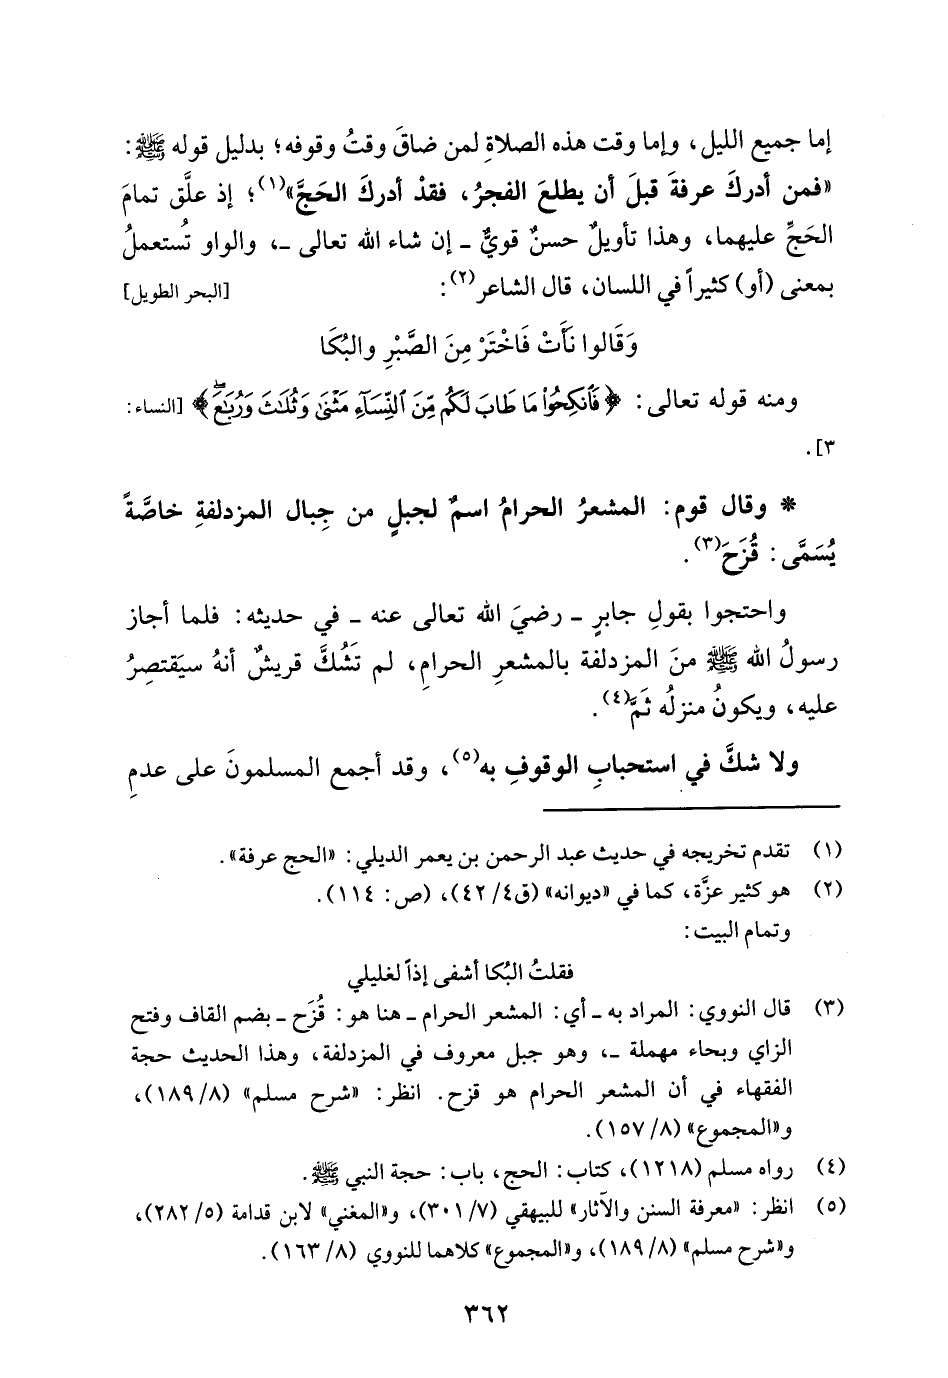 إما جميع الليل، وإما وقت هذه الصلاةِ لمن ضاقَ وقتُ وقوفه؛ بدليل قوله ﷺ:
«فمن أدركَ عرفةَ قبلَ أن يطلعَ الفجرُ، فقدْ أدركَ الحَجَّ»(١)؛ إذ علَّق تمامَ
الحَجِّ عليهما، وهذا تأويلٌ حسنٌ قويٌّ ـ إن شاء الله تعالى ـ، والواو تُستعملُ
بمعنى (أو) كثيراً في اللسان، قال الشاعر(٢): [البحر الطويل]
وَقَالوا نَأَتْ فَاخْتَرْ مِنَ الصَّبْرِ والبُكَا
ومنه قوله تعالى: ﴿فَٱنكِحُوا۟ مَا طَابَ لَكُم مِّنَ ٱلنِّسَآءِ مَثْنَىٰ وَثُلَٰثَ وَرُبَٰعَ ۖ﴾ [النساء:
٣].
* وقال قوم: المشعرُ الحرامُ اسمٌ لجبلٍ من جِبال المزدلفةِ خاصَّةً
يُسَمَّى: قُزَحَ(٣).
واحتجوا بقولِ جابرٍ ـ رضيَ الله تعالى عنه ـ في حديثه: فلما أجاز
رسولُ الله ﷺ منَ المزدلفة بالمشعرِ الحرامِ، لم تَشُكَّ قريشٌ أنهُ سيَقتصِرُ
عليه، ويكونُ منزلُه ثَمَّ(٤).
ولا شكَّ في استحبابِ الوقوفِ به(٥)، وقد أجمع المسلمونَ على عدمِ
(١) تقدم تخريجه في حديث عبد الرحمن بن يعمر الديلي: «الحج عرفة».
(٢) هو كثير عزَّة، كما في «ديوانه» (ق٤/ ٤٢)، (ص: ١١٤).
وتمام البيت:
فقلتُ البُكا أشفى إذاً لغليلي
(٣) قال النووي: المراد به ـ أي: المشعر الحرام ـ هنا هو: قُزَح ـ بضم القاف وفتح
الزاي وبحاء مهملة ـ، وهو جبل معروف في المزدلفة، وهذا الحديث حجة
الفقهاء في أن المشعر الحرام هو قزح. انظر: «شرح مسلم» (٨/ ١٨٩)،
و«المجموع» (٨/ ١٥٧).
(٤) رواه مسلم (١٢١٨)، كتاب: الحج، باب: حجة النبي ﷺ.
(٥) انظر: «معرفة السنن والآثار» للبيهقي (٧/ ٣٠١)، و«المغني» لابن قدامة (٥/ ٢٨٢)،
و«شرح مسلم» (٨/ ١٨٩)، و«المجموع» كلاهما للنووي (٨/ ١٦٣).
٣٦٢